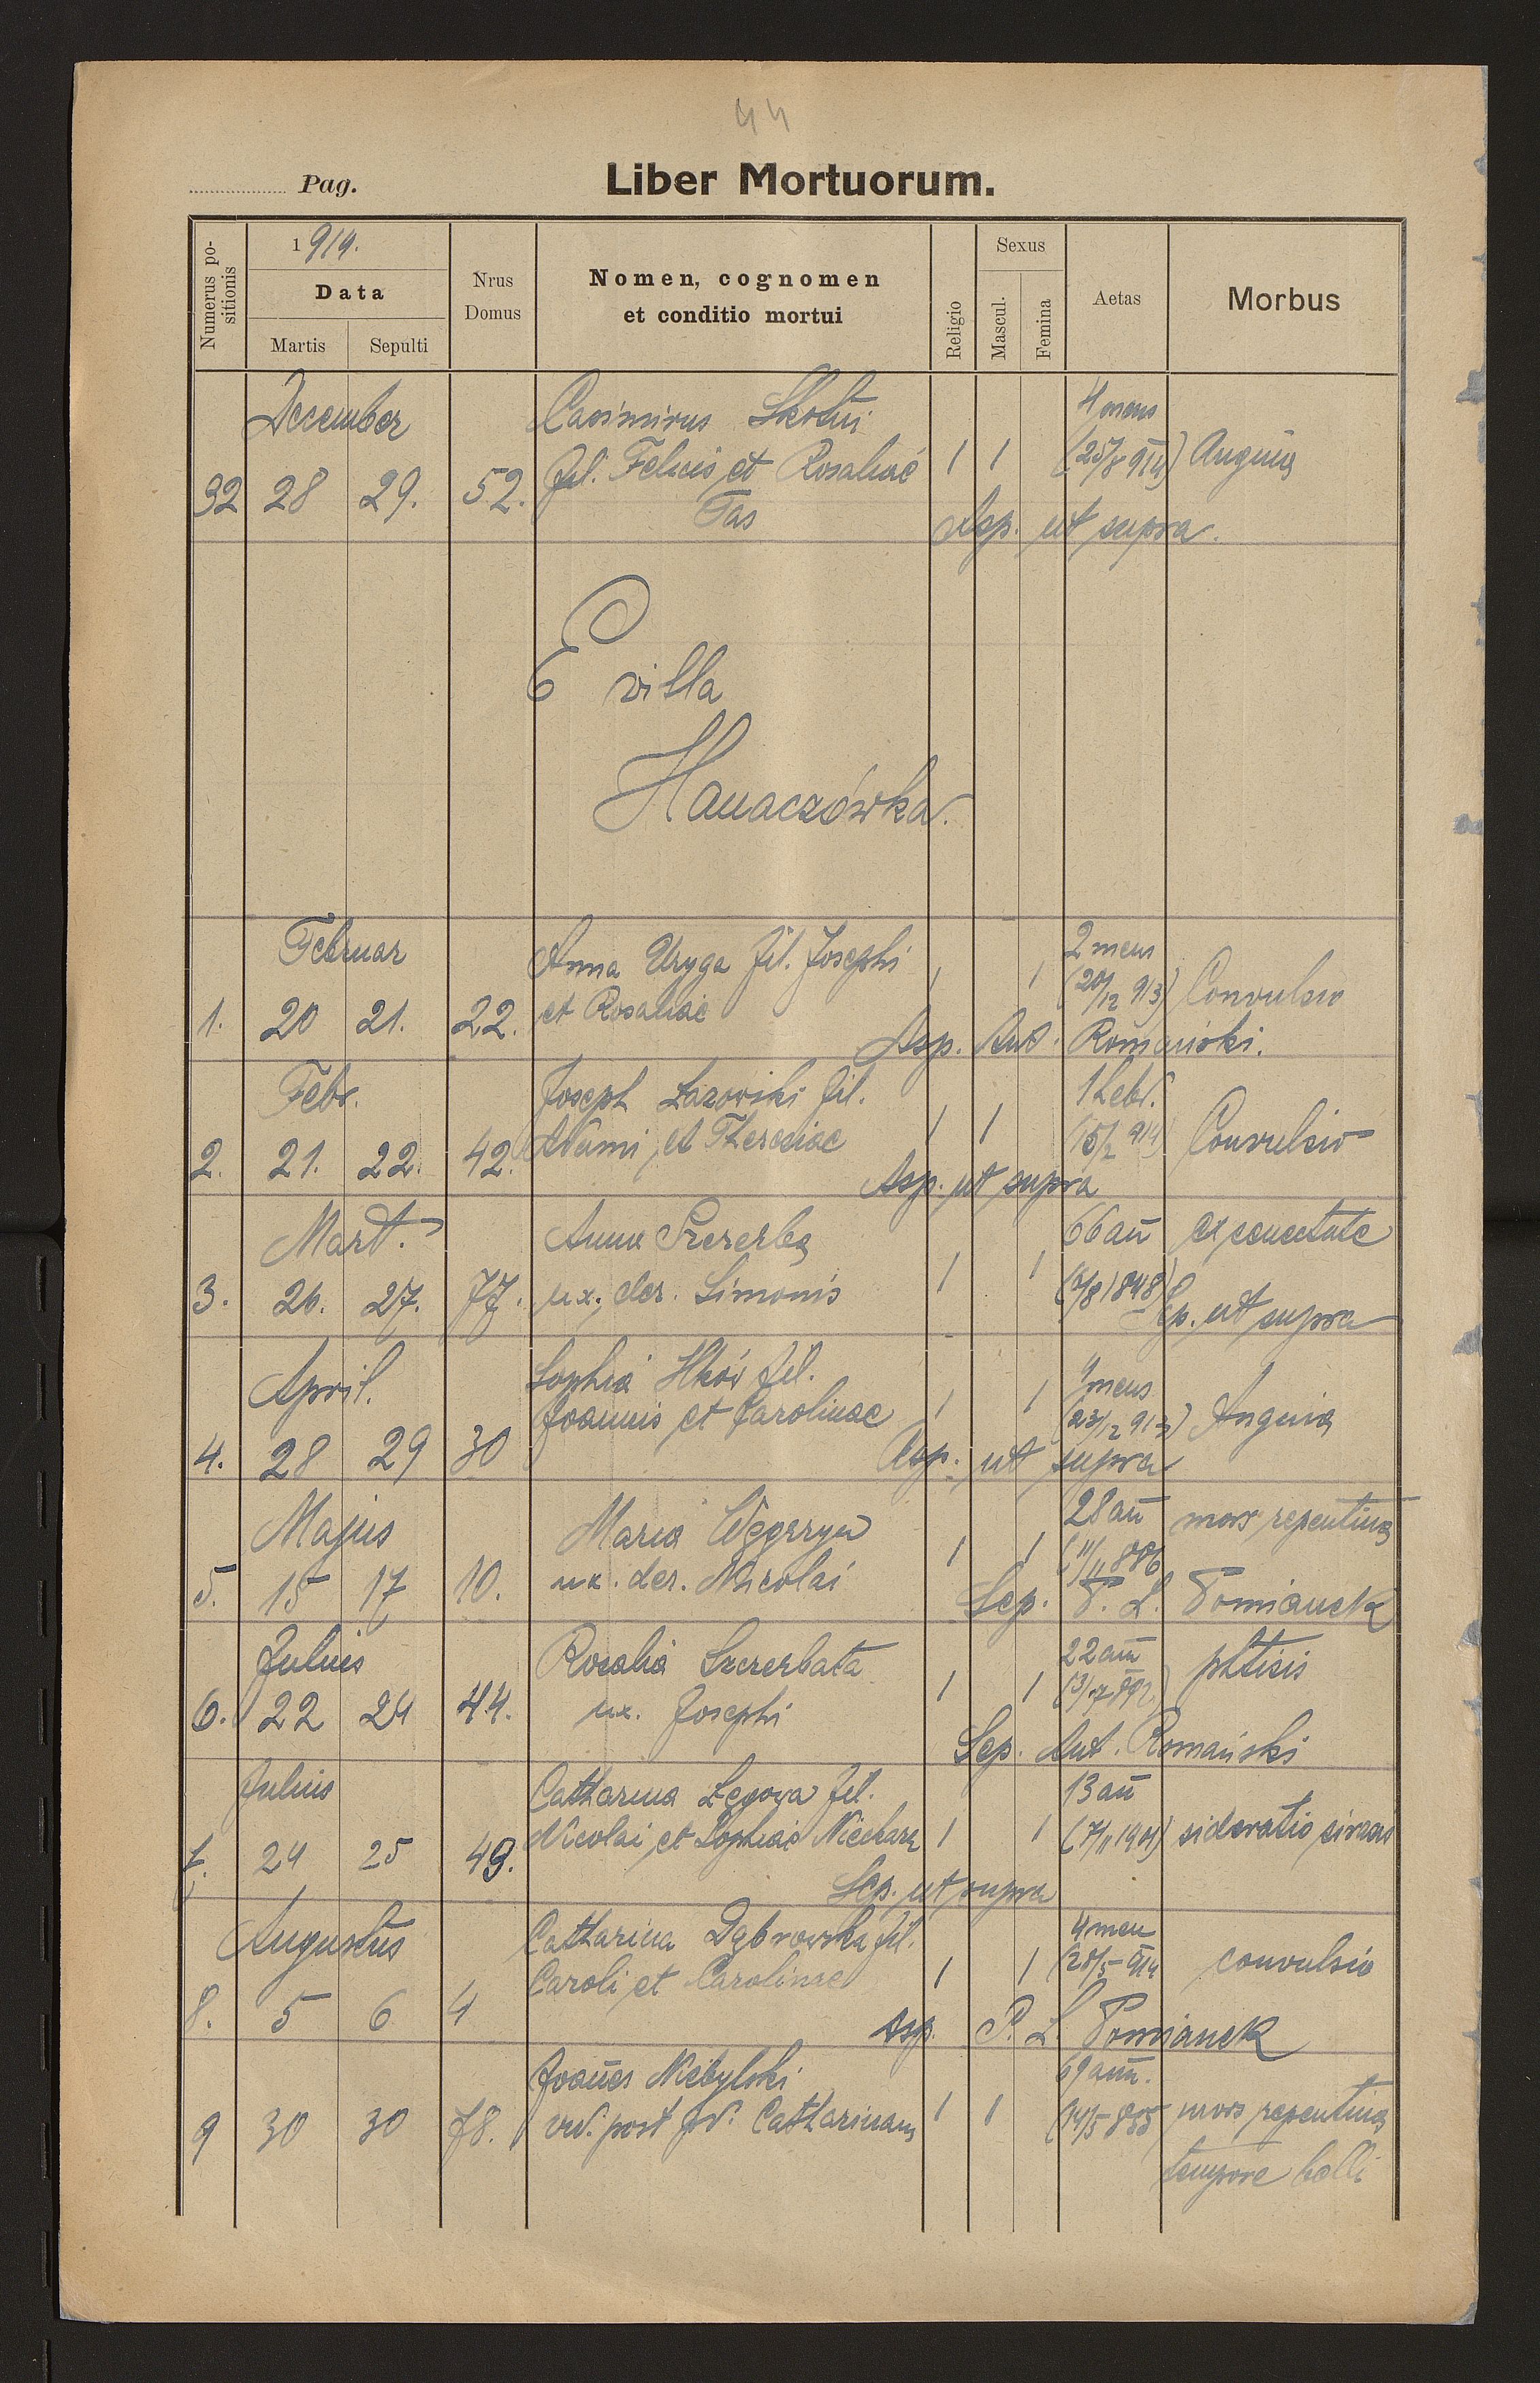 44
Pag.
Liber Mortuorum.
Numerus positionis
1914.
Data
Martis Sepulti
Nrus Domus
Nomen, cognomen
et conditio mortui
Religio
Sexus
Mascul. Femina
Aetas
Morbus
December Casimirus Skotni 4 mens
fil. Felicis et Rosaliae 1 1 (25/8 914) Angina
32 28 29. 52.
Tas Asp. ut supra.
E villa
Hanaczówka.
Februar Anna Uryga fil. Josephi 1 1 2 mens
(20/12 913) Convulsio
1. 20 21. 22. et Rosaliae
Asp. Ant. Romański.
Febr. Joseph Łazowski fil. 1 hebd.
2. 21. 22. 42. Adami et Theresiae 1 1 (15/2 914) Convulsio
Asp. ut supra
Mart. Anna Szczerba 66 an̄ ex senectute
3. 26. 27. 77. ux. der. Simonis 1 1 (6/8 1848)
Sep. ut supra
April. Sophia fil. 4 mens
Joannis et Carolinae 1 1 (23/12 913) Angina
4. 28 29 30
Asp. ut supra
Majus Maria Węgrzyn 28 an̄ mors repentina
5. 15 17 10. ux. der. Nicolai 1 1 (11/11 886
Sep. P. L. Pomianek
Julius Rosalia Szczerbata 22 an̄ phtisis
6. 22 24 44. ux. Josephi 1 1 (3/7 892)
Sep. Ant. Romański
Julius Catharina Zegowa fil. 13 an̄
7. 24 25 49. Nicolai et Sophiae 1 1 (7/11 1901) sideratio
Sep. ut supra
Augustus Catharina Dąbrowska fil. 4 men
Caroli et Carolinae 1 1 (28/5 914 convulsio
8. 5 6 4
Asp. P. L. Pomianek
Joan̄es Niebylski 69 an̄.
9 30 30 78. vid. post Catharinam 1 1 (14/5 855 mors repentina
tempore belli